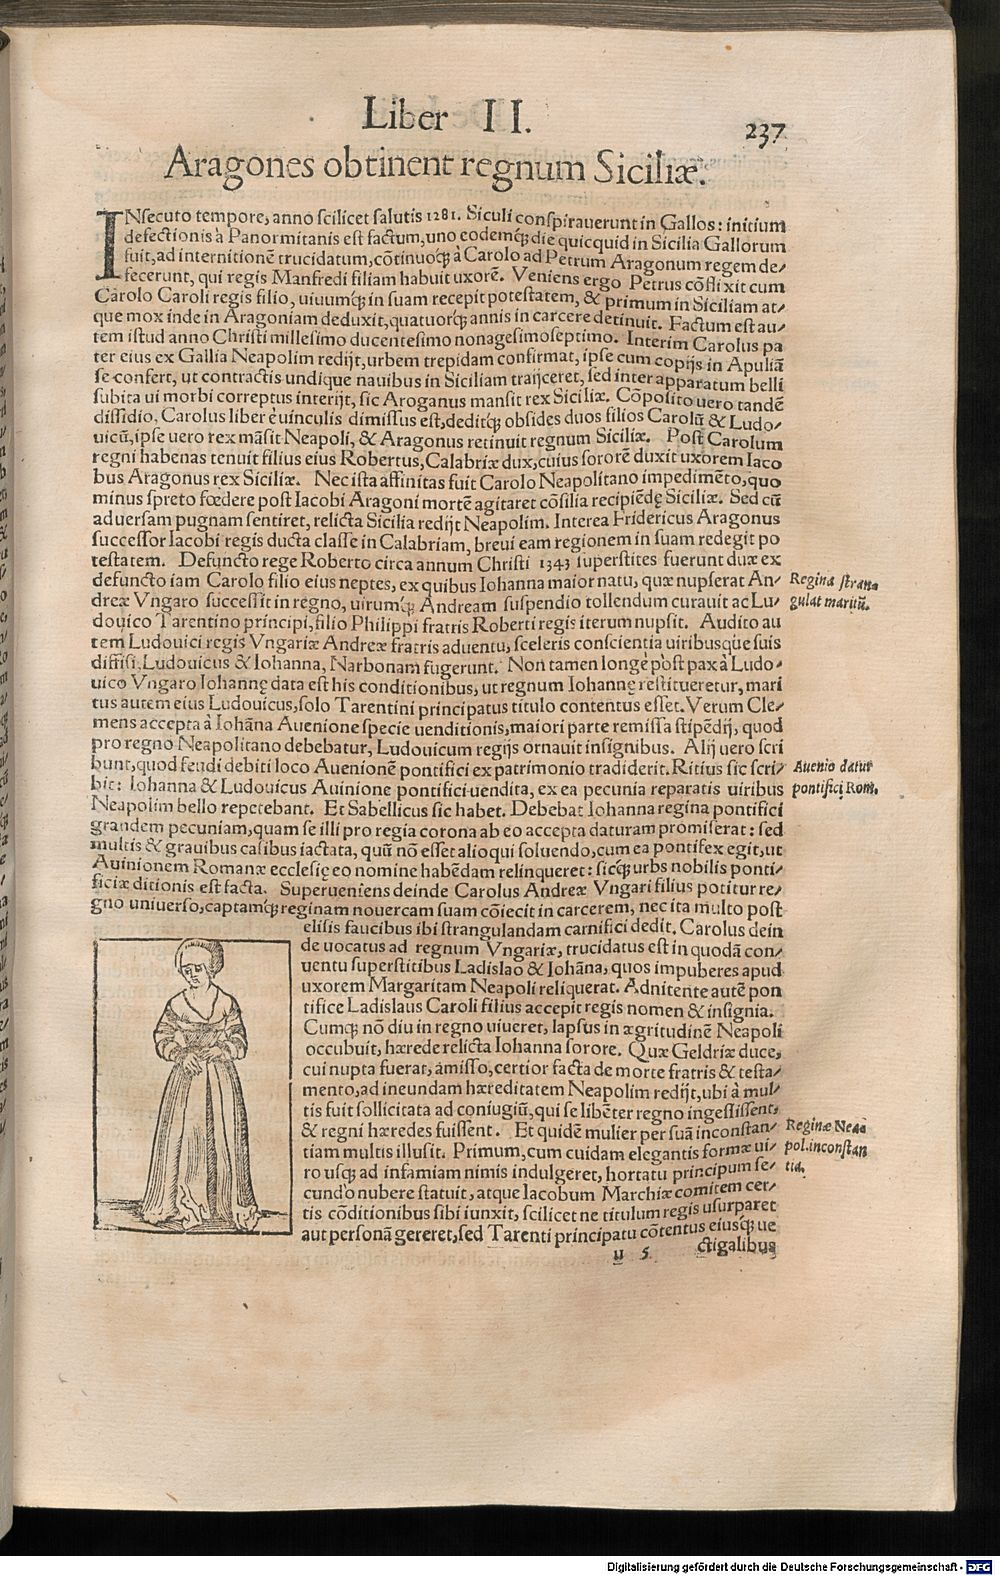 Liber II.
237
Aragones obtinent regnum Siciliæ.
INsecuto tempore, anno scilicet salutis 1281. Siculi conspirauerunt in Gallos: initium
defectionis à Panormitanis est factum, uno eodemq́; die quicquid in Sicilia Gallorum
fuit, ad internitionē trucidatum, cōtinuoq́; à Carolo ad Petrum Aragonum regem de/
fecerunt, qui regis Manfredi filiam habuit uxorē. Veniens ergo Petrus cōflixit cum
Carolo Caroli regis filio, uiuumq́; in suam recepit potestatem, & primum in Siciliam at/
que mox inde in Aragoniam deduxit, quatuorq́; annis in carcere detinuit. Factum est au/
tem istud anno Christi millesimo ducentesimo nonagesimoseptimo. Interim Carolus pa
ter eius ex Gallia Neapolim redijt, urbem trepidam confirmat, ipse cum copijs in Apuliā
se confert, ut contractis undique nauibus in Siciliam traijceret, sed inter apparatum belli
subita ui morbi correptus interijt, sic Aroganus mansit rex Siciliæ. Cōposito uero tandē
dissidio, Carolus liber è uinculis dimissus est, deditq́; obsides duos filios Carolū & Ludo/
uicū, ipse uero rex māsit Neapoli, & Aragonus retinuit regnum Siciliæ. Post Carolum
regni habenas tenuit filius eius Robertus, Calabriæ dux, cuius sororē duxit uxorem Iaco
bus Aragonus rex Siciliæ. Nec ista affinitas fuit Carolo Neapolitano impedimēto, quo
minus spreto fœdere post Iacobi Aragoni mortē agitaret cōsilia recipiēdę Siciliæ. Sed cū
aduersam pugnam sentiret, relicta Sicilia redijt Neapolim. Interea Fridericus Aragonus
successor Iacobi regis ducta classe in Calabriam, breui eam regionem in suam redegit po
testatem. Defuncto rege Roberto circa annum Christi 1343 superstites fuerunt duæ ex
defuncto iam Carolo filio eius neptes, ex quibus Iohanna maior natu, quæ nupserat An/
dreæ Vngaro successit in regno, uirumq́; Andream suspendio tollendum curauit ac Lu/
douico Tarentino principi, filio Philippi fratris Roberti regis iterum nupsit. Audito au
tem Ludouici regis Vngariæ Andreæ fratris aduentu, sceleris conscientia uiribusque suis
diffisi, Ludouicus & Iohanna, Narbonam fugerunt. Non tamen longè pòst pax à Ludo/
uico Vngaro Iohannę data est his conditionibus, ut regnum Iohannę restitueretur, mari
tus autem eius Ludouicus, solo Tarentini principatus titulo contentus esset. Verum Cle/
mens accepta à Iohāna Auenione specie uenditionis, maiori parte remissa stipēdij, quod
pro regno Neapolitano debebatur, Ludouicum regijs ornauit insignibus. Alij uero scri
bunt, quod feudi debiti loco Auenionē pontifici ex patrimonio tradiderit. Ritius sic scri/
bit: Iohanna & Ludouicus Auinione pontifici uendita, ex ea pecunia reparatis uiribus
Neapolim bello repetebant. Et Sabellicus sic habet. Debebat Iohanna regina pontifici
grandem pecuniam, quam se illi pro regia corona ab eo accepta daturam promiserat: sed
multis & grauibus casibus iactata, quū nō esset alioqui soluendo, cum ea pontifex egit, ut
Auinionem Romanæ ecclesię eo nomine habēdam relinqueret: sicq́; urbs nobilis ponti/
ficiæ ditionis est facta. Superueniens deinde Carolus Andreæ Vngari filius potitur re/
gno uniuerso, captamq́; reginam nouercam suam cōiecit in carcerem, nec ita multo post
elisis faucibus ibi strangulandam carnifici dedit. Carolus dein
de uocatus ad regnum Vngariæ, trucidatus est in quodā con/
uentu superstitibus Ladislao & Iohāna, quos impuberes apud
uxorem Margaritam Neapoli reliquerat. Adnitente autē pon
tifice Ladislaus Caroli filius accepit regis nomen & insignia.
Cumq́; nō diu in regno uiueret, lapsus in ægritudinē Neapoli
occubuit, hærede relicta Iohanna sorore. Quæ Geldriæ duce,
cui nupta fuerat, amisso, certior facta de morte fratris & testa/
mento, ad ineundam hæreditatem Neapolim redijt, ubi à mul/
tis fuit sollicitata ad coniugiū, qui se libēter regno ingessissent,
& regni hæredes fuissent. Et quidē mulier per suā inconstan/
tiam multis illusit. Primum, cum cuidam elegantis formæ ui/
ro usq́; ad infamiam nimis indulgeret, hortatu principum se/
cundò nubere statuit, atque Iacobum Marchiæ comitem cer/
tis cōditionibus sibi iunxit, scilicet ne titulum regis usurparet
aut personā gereret, sed Tarenti principatu cōtentus eiusq́; ue
u 5
ctigalibus
Regina stran-
gulat maritū.
Auenio datur
pontifici Rom.
Reginæ Nea
pol. inconstan
tia.
Digitalisierung gefördert durch die Deutsche Forschungsgemeinschaft - DFG